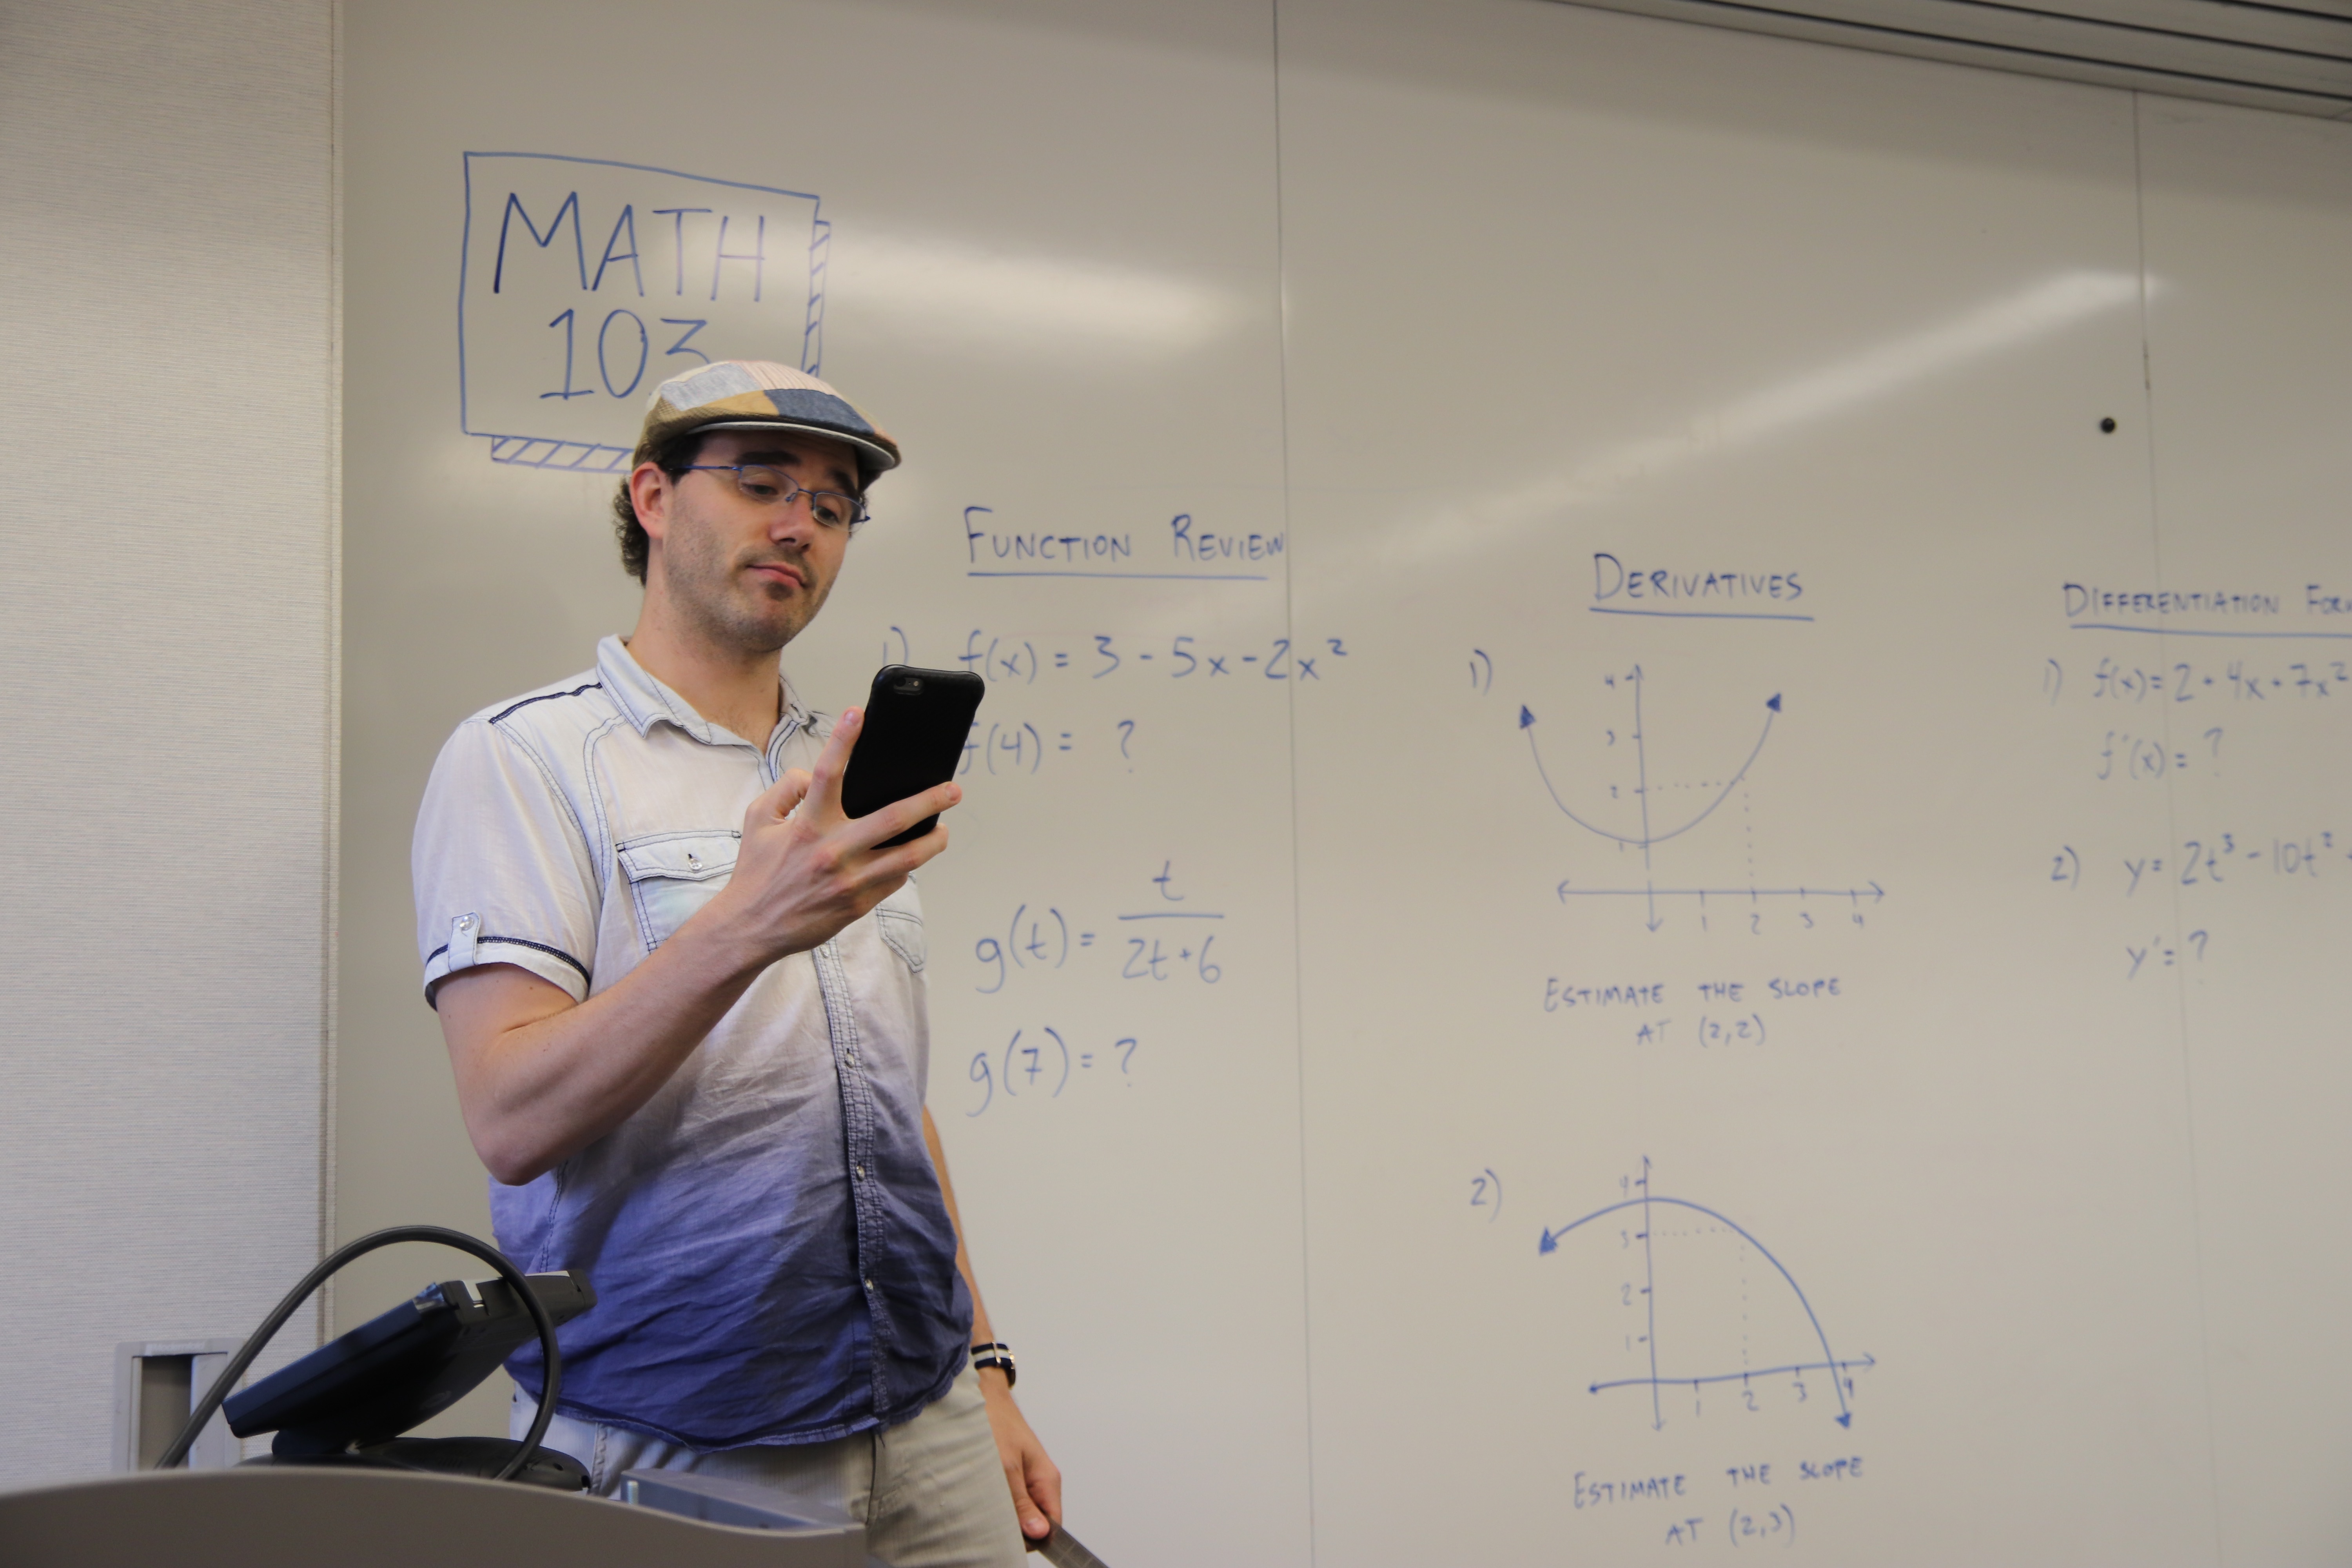 MATH
103
FUNCTION REVIEW
1) f(x) = 3 - 5x - 2x²
f(4) = ?
g(t) = t / 2t + 6
g(7) = ?
DERIVATIVES
1)
4
3
2
1
1 2 3 4
ESTIMATE THE SLOPE
AT (2,2)
2)
4
3
2
1
1 2 3 4
ESTIMATE THE SLOPE
AT (2,3)
DIFFERENTIATION
1) f(x) = 2 + 4x + 7x²
f'(x) = ?
2) y = 2t³ - 10t²
y' = ?